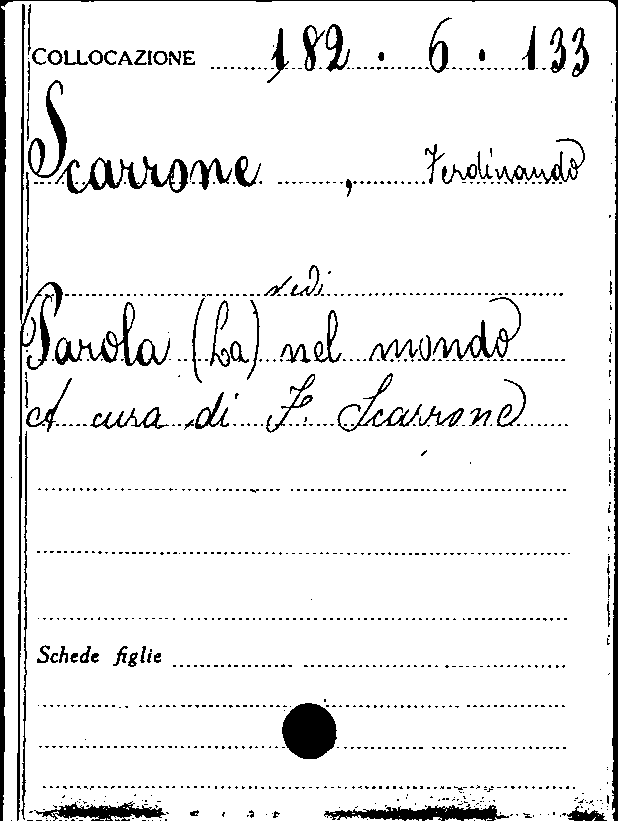 COLLOCAZIONE 182 . 6 . 133
Scarrone, Ferdinando
vedi
Parola (La) nel mondo
A cura di F. Scarrone
Schede figlie